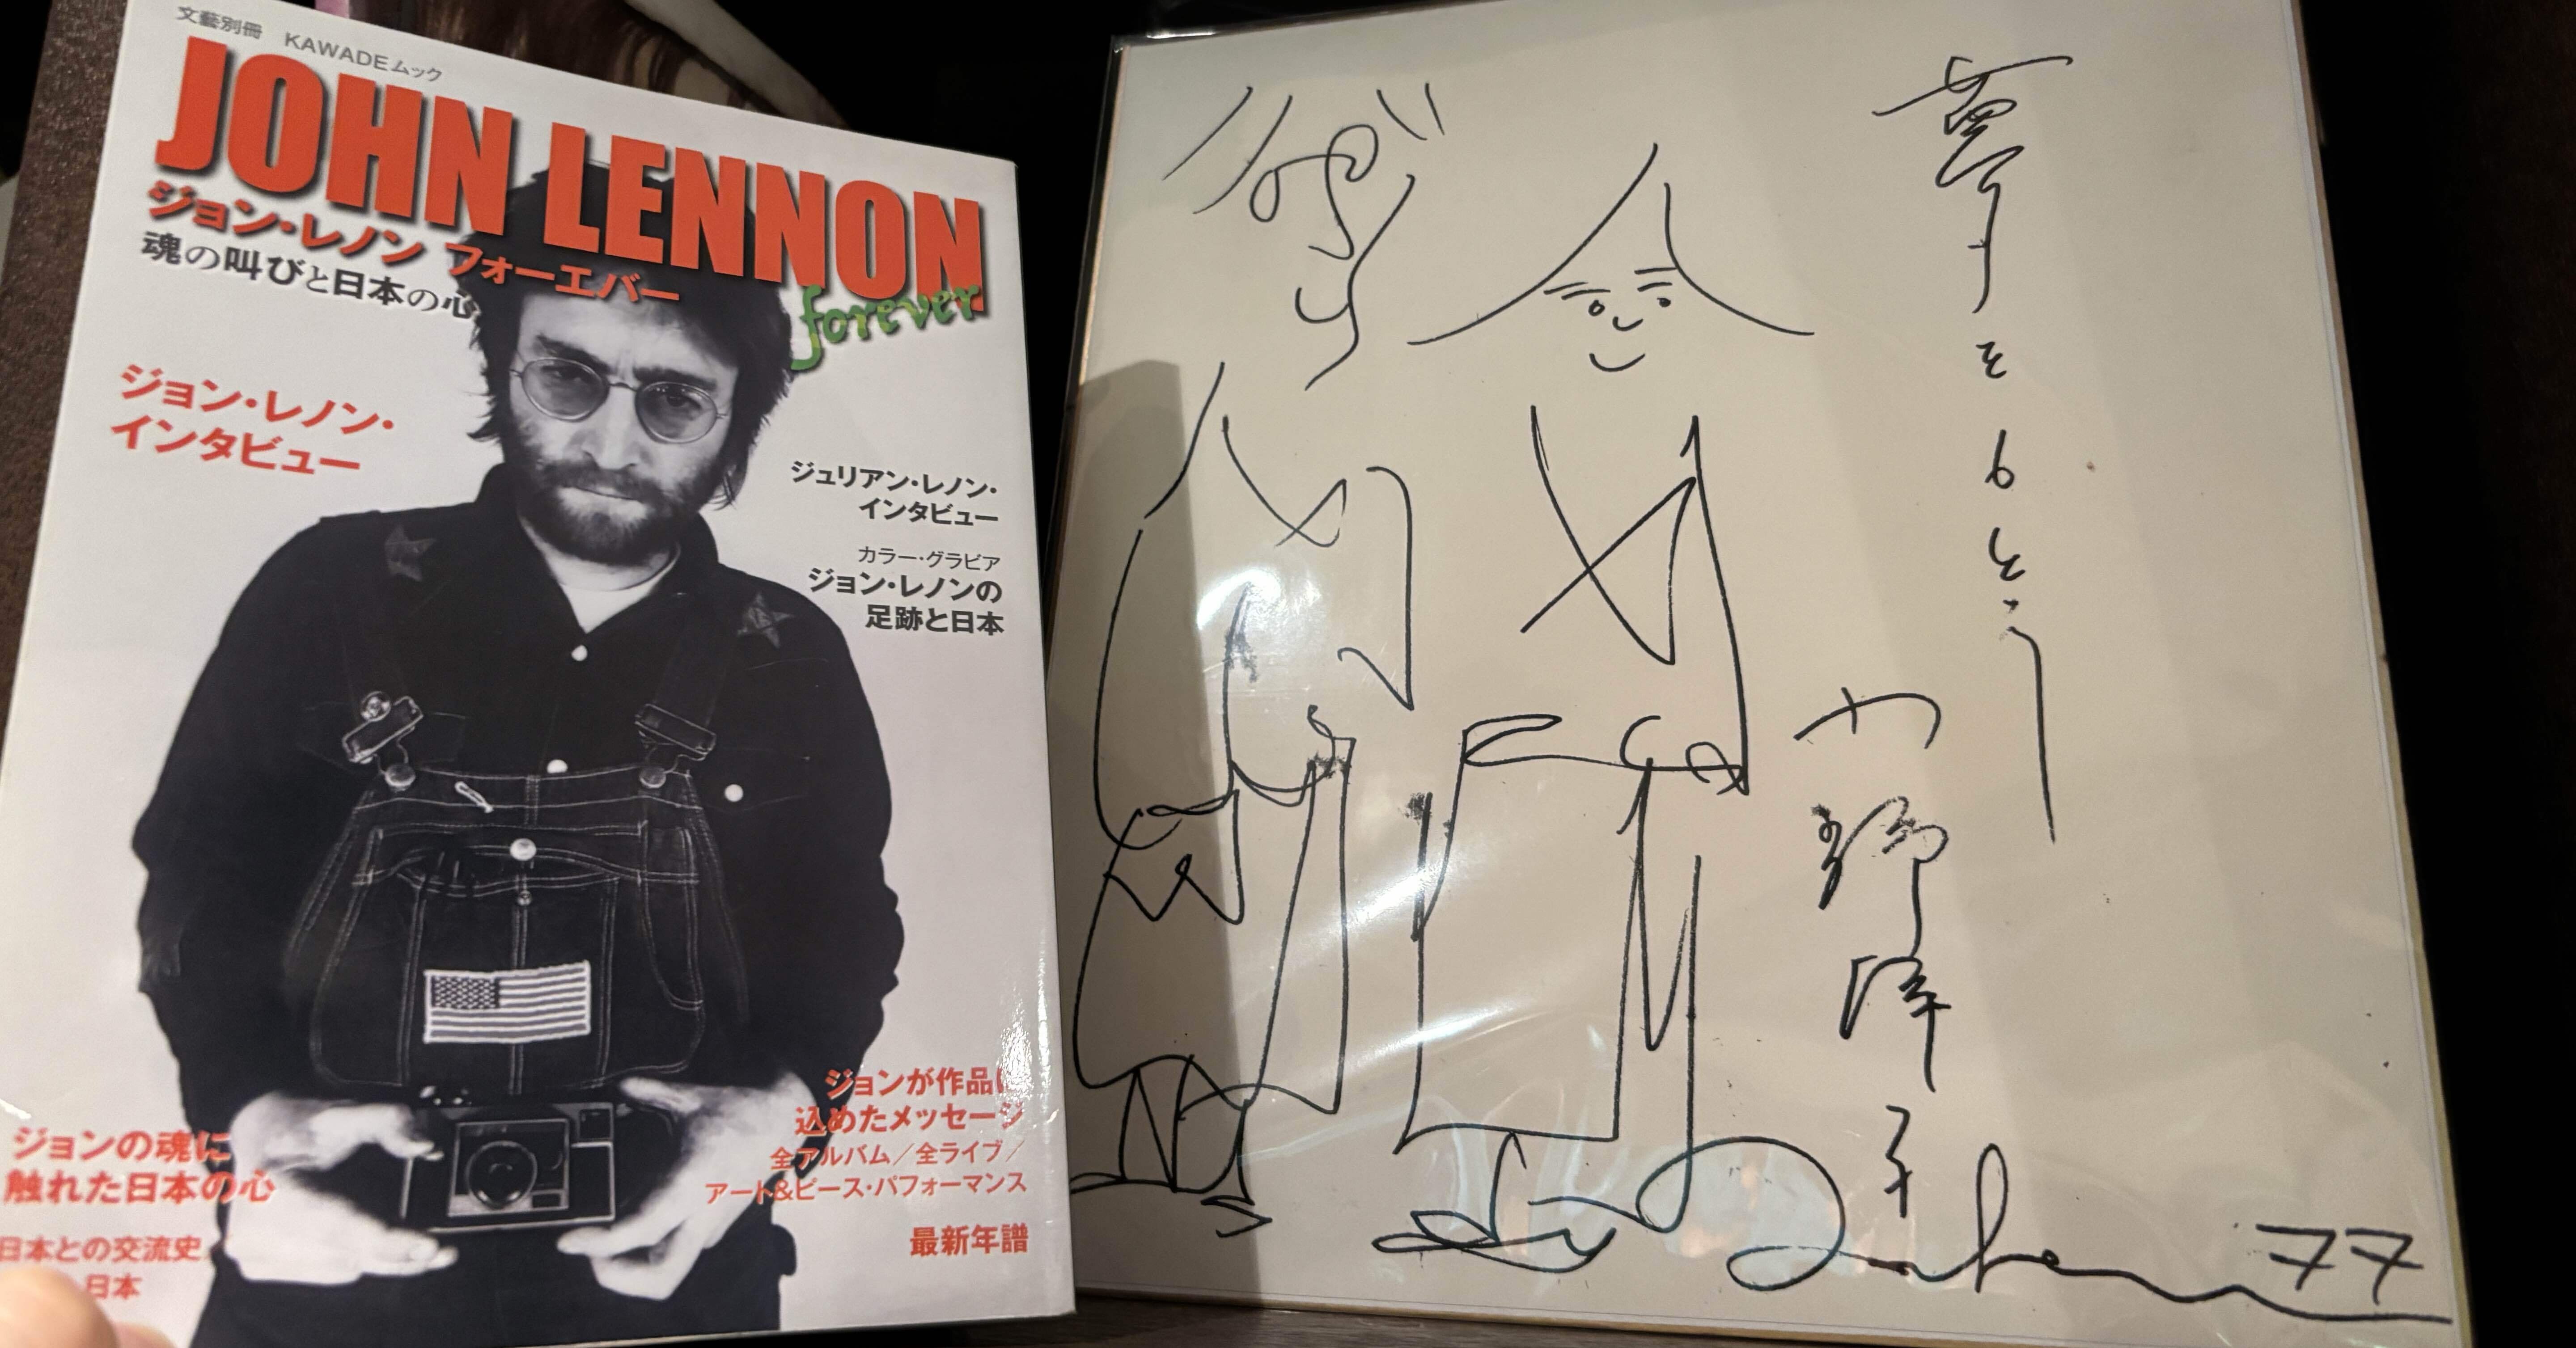 文藝別冊 KAWADEムック
JOHN LENNON
forever
ジョン・レノン フォーエバー
魂の叫びと日本の心
ジョン・レノン・
インタビュー
ジュリアン・レノン・
インタビュー
カラー・グラビア
ジョン・レノンの
足跡と日本
ジョンが作品に
込めたメッセージ
全アルバム／全ライブ／
アート&ピース・パフォーマンス
最新年譜
ジョンの魂に
触れた日本の心
日本との交流史
日本
夢をもとう
小野洋子
John Lennon 77